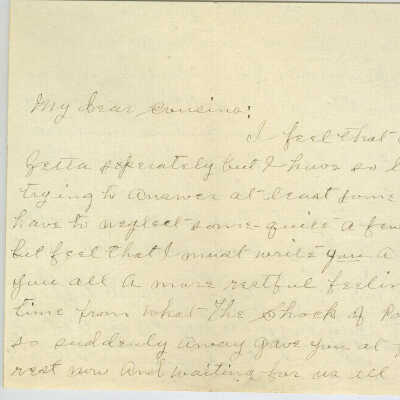 My dear cousins:
I feel that
Getta seperately but I have so
trying to answer at least some
have to neglect some - quite a few
but feel that I must write you a
you all a more restful feelin
time from what the shock of
so suddenly away gave you at
rest now and waiting for us all